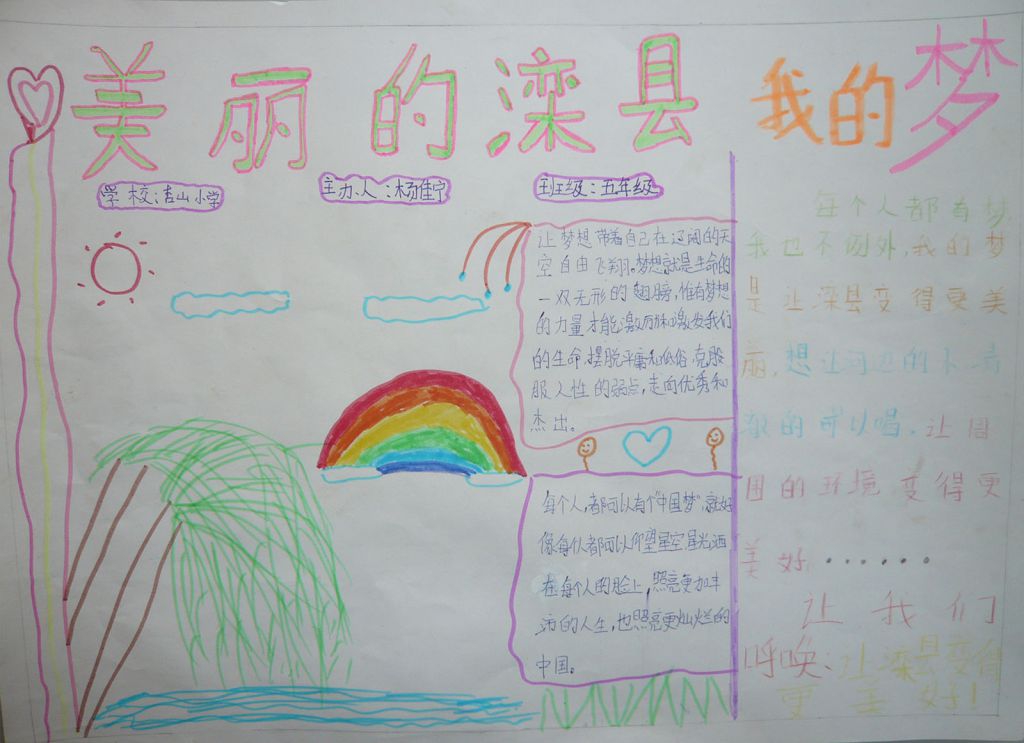 美丽的滦县
我的梦
学校:吉山小学
主办人:杨佳宁
班级:五年级
让梦想带着自己在辽阔的天
空自由飞翔。梦想就是生命的
一双无形的翅膀,惟有梦想
的力量才能激励和激发我们
的生命,摆脱平庸和低俗,克服
服人性的弱点,走向优秀和
杰出。
每个人,都可以有个"中国梦",就好
像每个人都可以仰望星空,星光洒
在每个人的脸上,照亮更加丰
沛的人生,也照亮更灿烂的
中国。
每个人都有梦,
我也不例外,我的梦
是让滦县变得更美
丽,想让河边的水清
澈的可以喝。让周
围的环境变得更
美好.......
让我们
呼唤:让滦县变得
更美好!